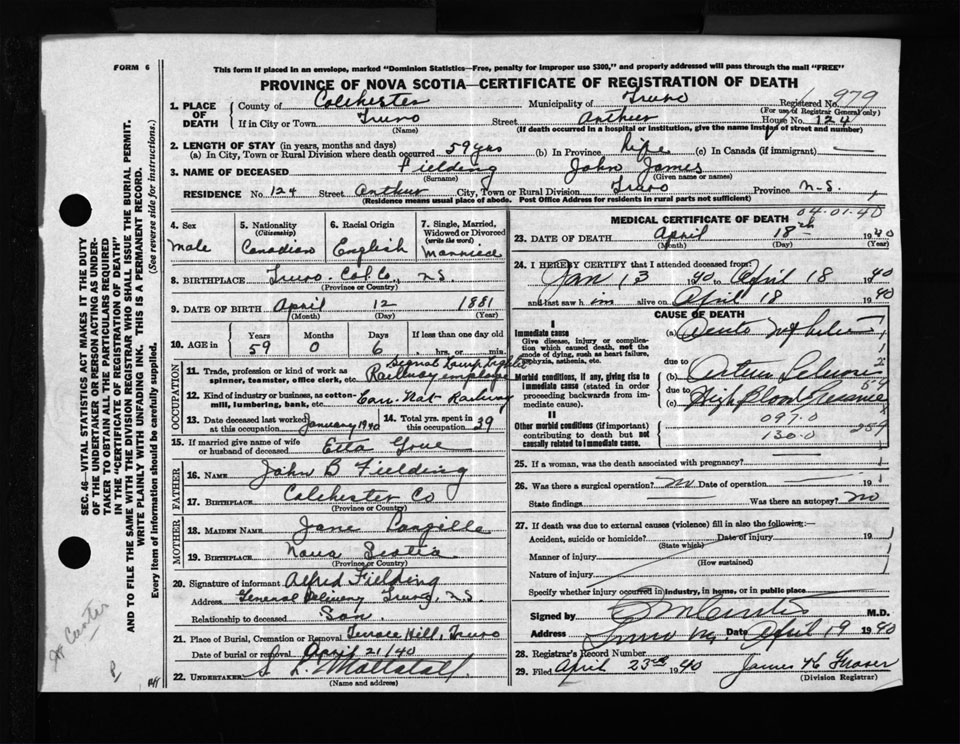 FORM 6
This form if placed in an envelope, marked "Dominion Statistics—Free, penalty for improper use $300," and properly addressed will pass through the mail "FREE"
PROVINCE OF NOVA SCOTIA—CERTIFICATE OF REGISTRATION OF DEATH
Registered No. 979
(For use of Registrar General only)
1. PLACE OF DEATH
County of Colchester Municipality of Truro
If in City or Town Truro Street Arthur House No. 124
(Name) (If death occurred in a hospital or institution, give the name instead of street and number)
2. LENGTH OF STAY (in years, months and days)
(a) In City, Town or Rural Division where death occurred 59 yrs (b) In Province Life (c) In Canada (if immigrant) —
3. NAME OF DECEASED Fielding John James
(Surname) (Given name or names)
RESIDENCE No. 124 Street Arthur City, Town or Rural Division Truro Province N.S.
(Residence means usual place of abode. Post Office Address for residents in rural parts not sufficient)
4. Sex
Male
5. Nationality
(Citizenship)
Canadian
6. Racial Origin
English
7. Single, Married, Widowed or Divorced
(write the word)
Married
8. BIRTHPLACE Truro Col. Co., N.S.
(Province or Country)
9. DATE OF BIRTH April 12 1881
(Month) (Day) (Year)
10. AGE in
Years Months Days If less than one day old
59 0 6 hrs. or min.
OCCUPATION
11. Trade, profession or kind of work as spinner, teamster, office clerk, etc. Signal Lamp Railway employee
12. Kind of industry or business, as cotton-mill, lumbering, bank, etc. Can. Nat. Railway
13. Date deceased last worked at this occupation January 1940
14. Total yrs. spent in this occupation 39
15. If married give name of wife or husband of deceased Etta
FATHER
16. NAME John B Fielding
17. BIRTHPLACE Colchester Co
(Province or Country)
MOTHER
18. MAIDEN NAME Jane
19. BIRTHPLACE Nova Scotia
(Province or Country)
20. Signature of informant Alfred Fielding
Address General Delivery Truro, N.S.
Relationship to deceased Son
21. Place of Burial, Cremation or Removal Terrace Hill, Truro
Date of burial or removal April 21/40
22. UNDERTAKER S. L. Mattatall
(Name and address)
MEDICAL CERTIFICATE OF DEATH
04.01.40
23. DATE OF DEATH April 18th 1940
(Month) (Day) (Year)
24. I HEREBY CERTIFY that I attended deceased from:
Jan 13 1940 to April 18 1940
and last saw him alive on April 18 1940
CAUSE OF DEATH
I
Immediate cause
Give disease, injury or complication which caused death, not the mode of dying, such as heart failure, asphyxia, asthenia, etc.
(a)
due to
Morbid conditions, if any, giving rise to immediate cause (stated in order proceeding backwards from immediate cause).
(b)
due to
(c) High Blood Pressure
II
Other morbid conditions (if important) contributing to death but not causally related to immediate cause.
097.0
130.0
25. If a woman, was the death associated with pregnancy?
26. Was there a surgical operation? No Date of operation 19
State findings Was there an autopsy? No
27. If death was due to external causes (violence) fill in also the following:—
Accident, suicide or homicide? Date of injury 19
(State which)
Manner of injury
(How sustained)
Nature of injury
Specify whether injury occurred in industry, in home, or in public place
Signed by M.D.
Address Truro N.S. Date April 19 1940
28. Registrar's Record Number
29. Filed April 23rd 1940 James H Fraser
(Division Registrar)
SEC. 46—VITAL STATISTICS ACT MAKES IT THE DUTY
OF THE UNDERTAKER OR PERSON ACTING AS UNDERTAKER
TO OBTAIN ALL THE PARTICULARS REQUIRED
IN THE "CERTIFICATE OF REGISTRATION OF DEATH"
AND TO FILE THE SAME WITH THE DIVISION REGISTRAR WHO SHALL ISSUE THE BURIAL PERMIT.
WRITE PLAINLY WITH UNFADING INK. THIS IS A PERMANENT RECORD.
Every item of information should be carefully supplied. (See reverse side for instructions.)